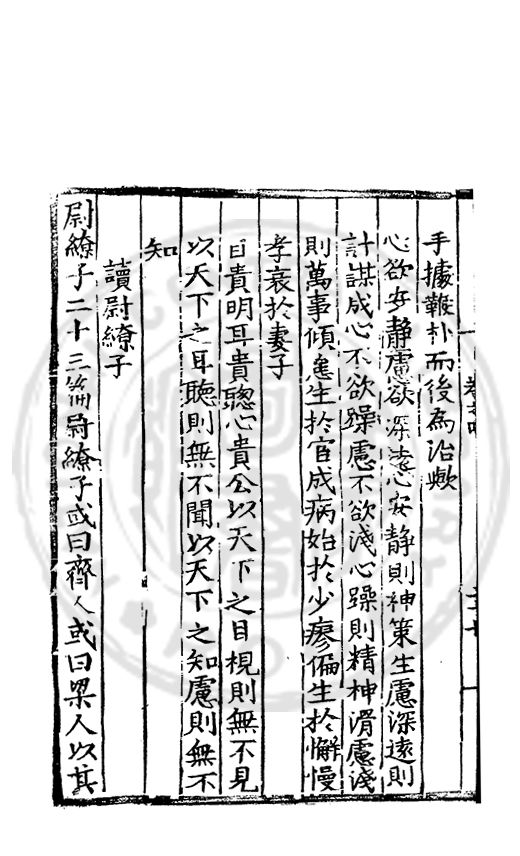 手據鞭朴而後為治歟
心欲安静慮欲深遠心安静則神策生慮深遠則
計謀成心不欲躁慮不欲淺心躁則精神滑慮淺
則萬事傾怠生於官成病始於少瘳偏生於懈慢
孝衰於妻子
目貴明耳貴聰心貴公以天下之目視則無不見
以天下之耳聽則無不聞以天下之知慮則無不
知
讀尉繚子
尉繚子二十三篇尉繚子或曰齊人或曰梁人以其